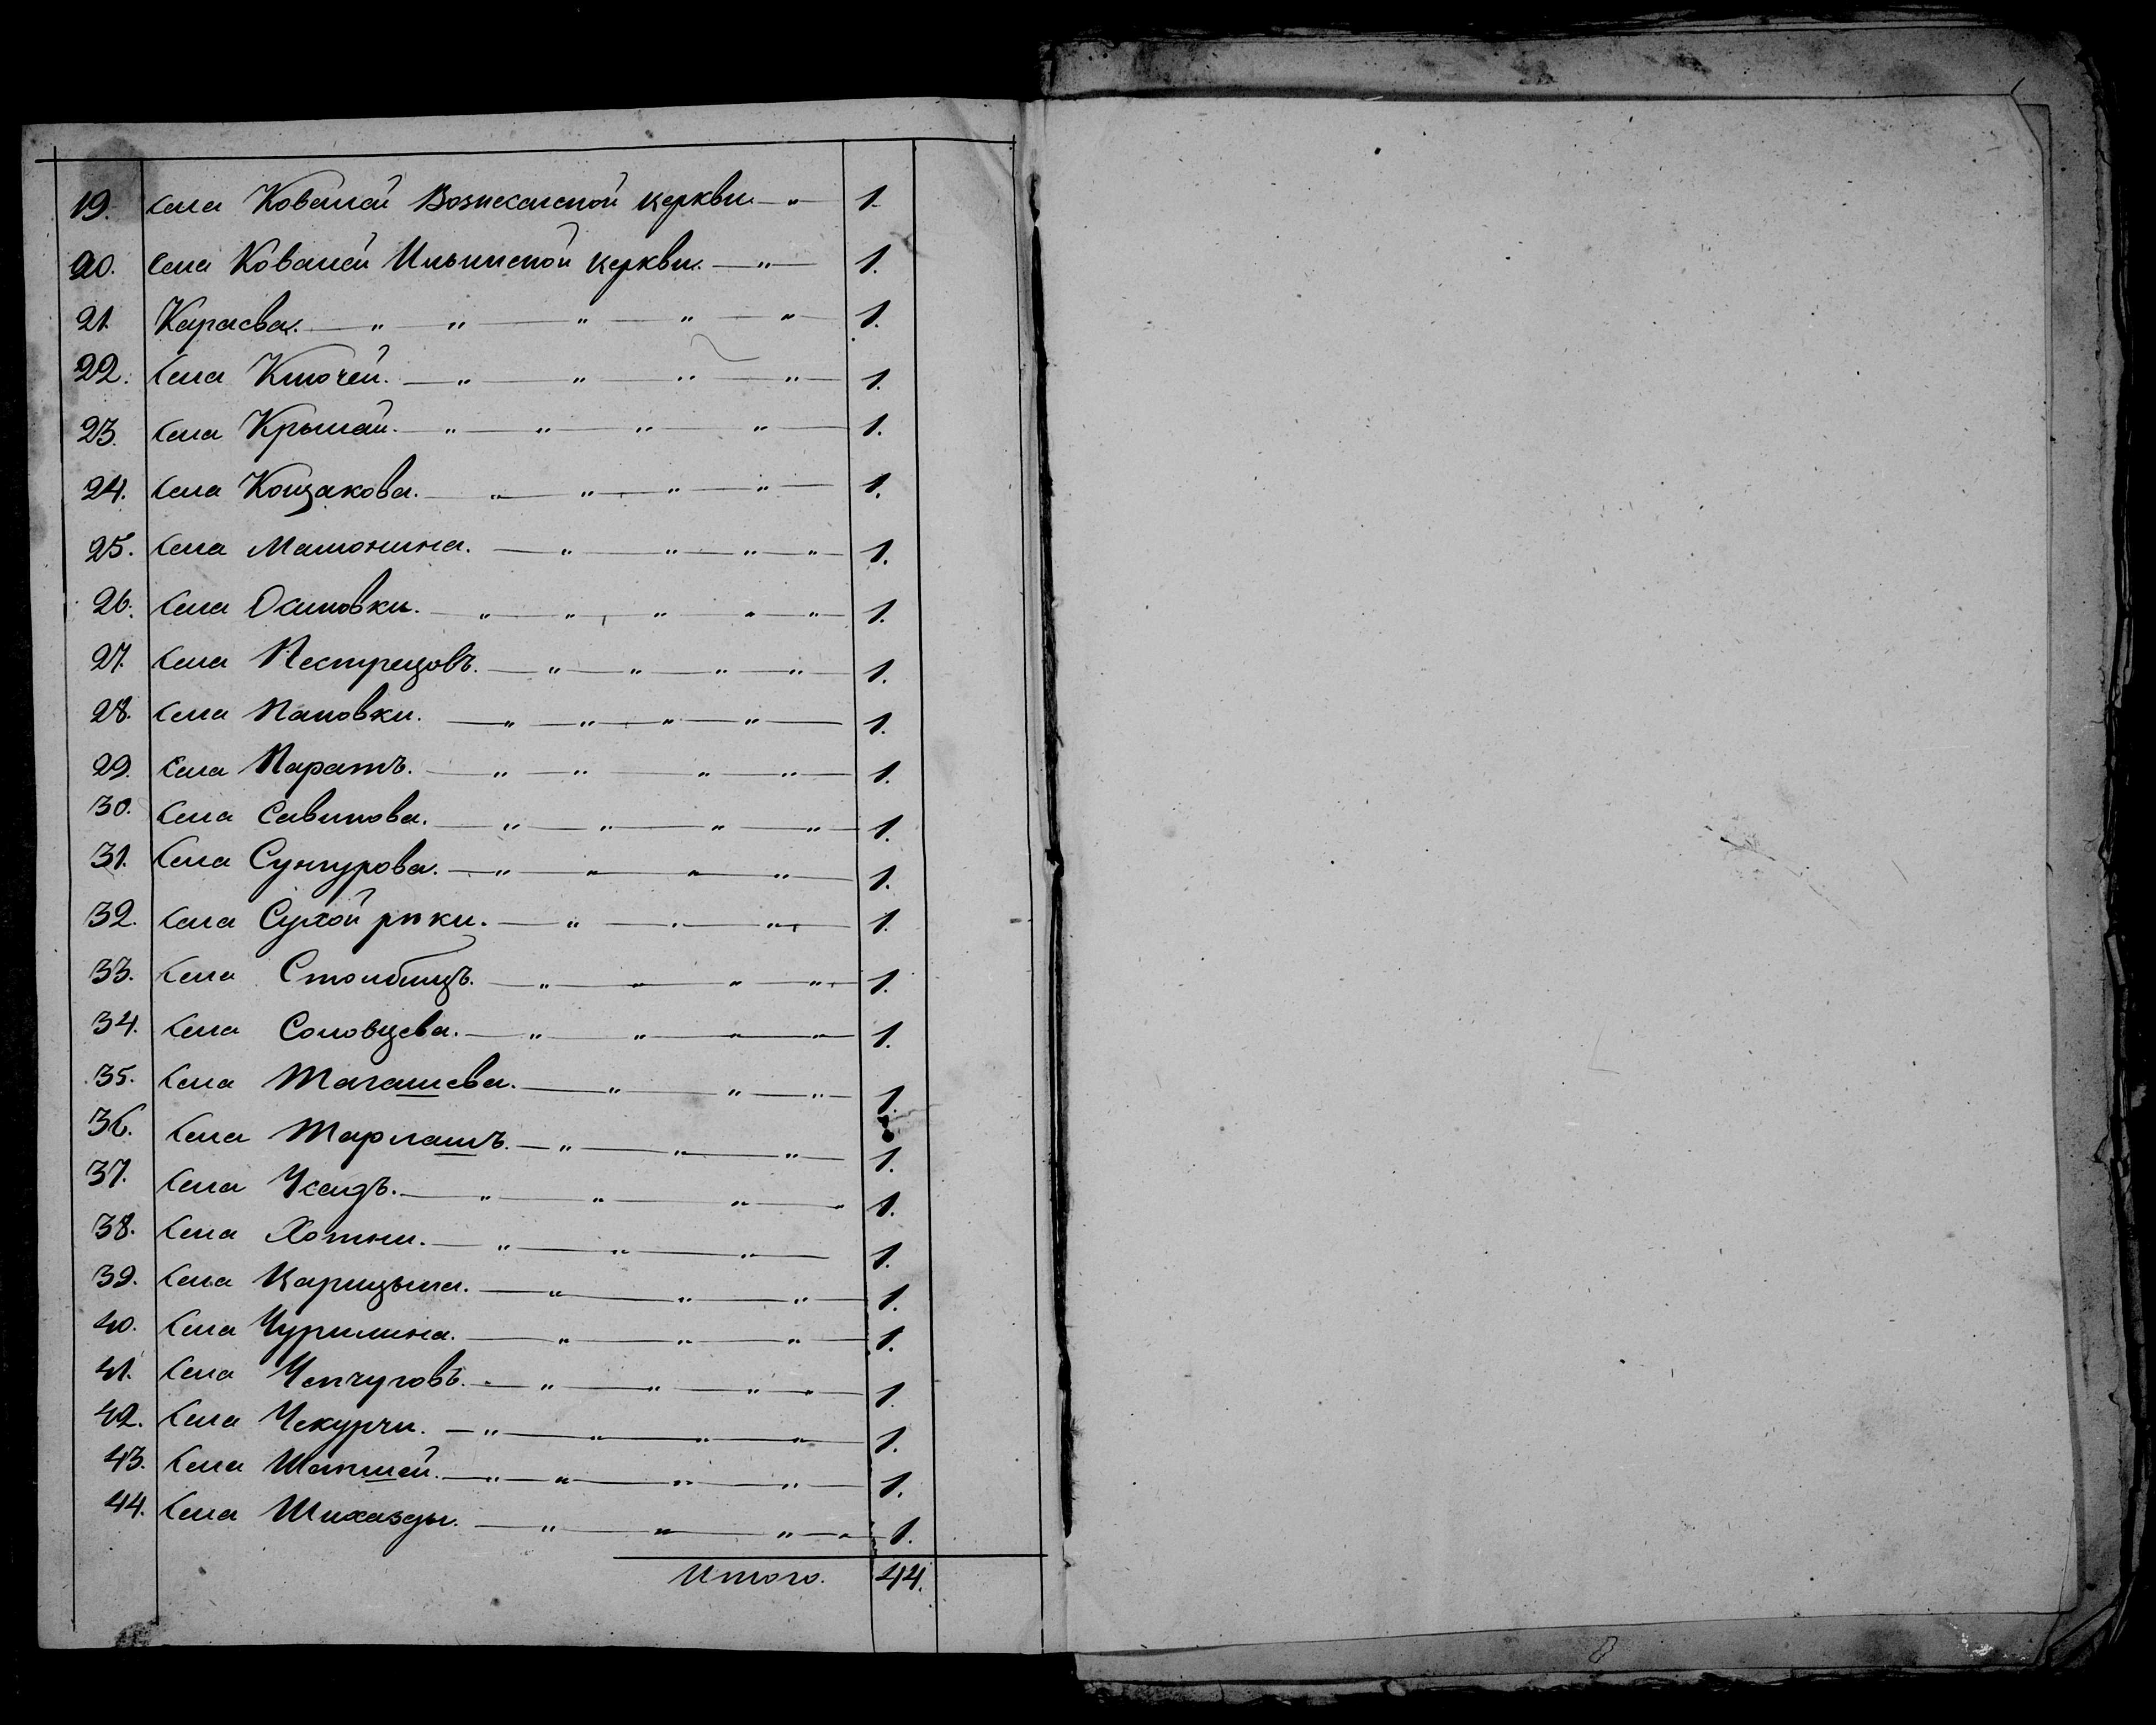 19. Села Ковалей Вознесенской церкви. — " — 1.
20. Села Ковалей Ильинской церкви. — " — 1.
21. Караева. — " — " — " — " — " — 1.
22. Села Ключей. — " — " — " — " — 1.
23. Села Крылай. — " — " — " — " — 1.
24. Села Кощакова. — " — " — " — " — 1.
25. Села Мамонина. — " — " — " — " — 1.
26. Села Осиповки. — " — " — " — " — " — 1.
27. Села Пестрецовъ. — " — " — " — " — 1.
28. Села Пановки. — " — " — " — " — 1.
29. Села Паратъ. — " — " — " — " — 1.
30. Села Савинова. — " — " — " — " — 1.
31. Села Сунгурова. — " — " — " — " — 1.
32. Села Сухой рѣки. — " — " — " — 1.
33. Села Столбищъ. — " — " — " — " — 1.
34. Села Соловцева. — " — " — " — " — 1.
35. Села Тагашева. — " — " — " — 1.
36. Села Тарлашъ. — " — " — " — 1.
37. Села Усадъ. — " — " — " — " 1.
38. Села Хотни. — " — " — " — 1.
39. Села Царицына. — " — " — " — 1.
40. Села Чурилина. — " — " — " — 1.
41. Села Чепчуговъ. — " — " — " — " — 1.
42. Села Чекурчи. — " — " — " — " — 1.
43. Села Шапшей. — " — " — " — " — 1.
44. Села Шихазды. — " — " — " — " — 1.
Итого. 44.